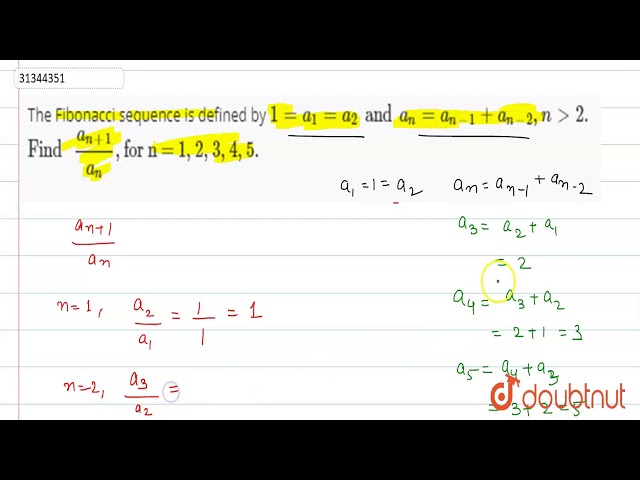 31344351
The Fibonacci sequence is defined by 1 = a₁ = a₂ and aₙ = aₙ₋₁ + aₙ₋₂, n > 2.
Find aₙ₊₁/aₙ, for n = 1, 2, 3, 4, 5.
a₁ = 1 = a₂
aₙ = aₙ₋₁ + aₙ₋₂
aₙ₊₁/aₙ
a₃ = a₂ + a₁
= 2
n=1, a₂/a₁ = 1/1 = 1
a₄ = a₃ + a₂
= 2 + 1 = 3
n=2, a₃/a₂ =
a₅ = a₄ + a₃
= 3 + 2 = 5
doubtnut